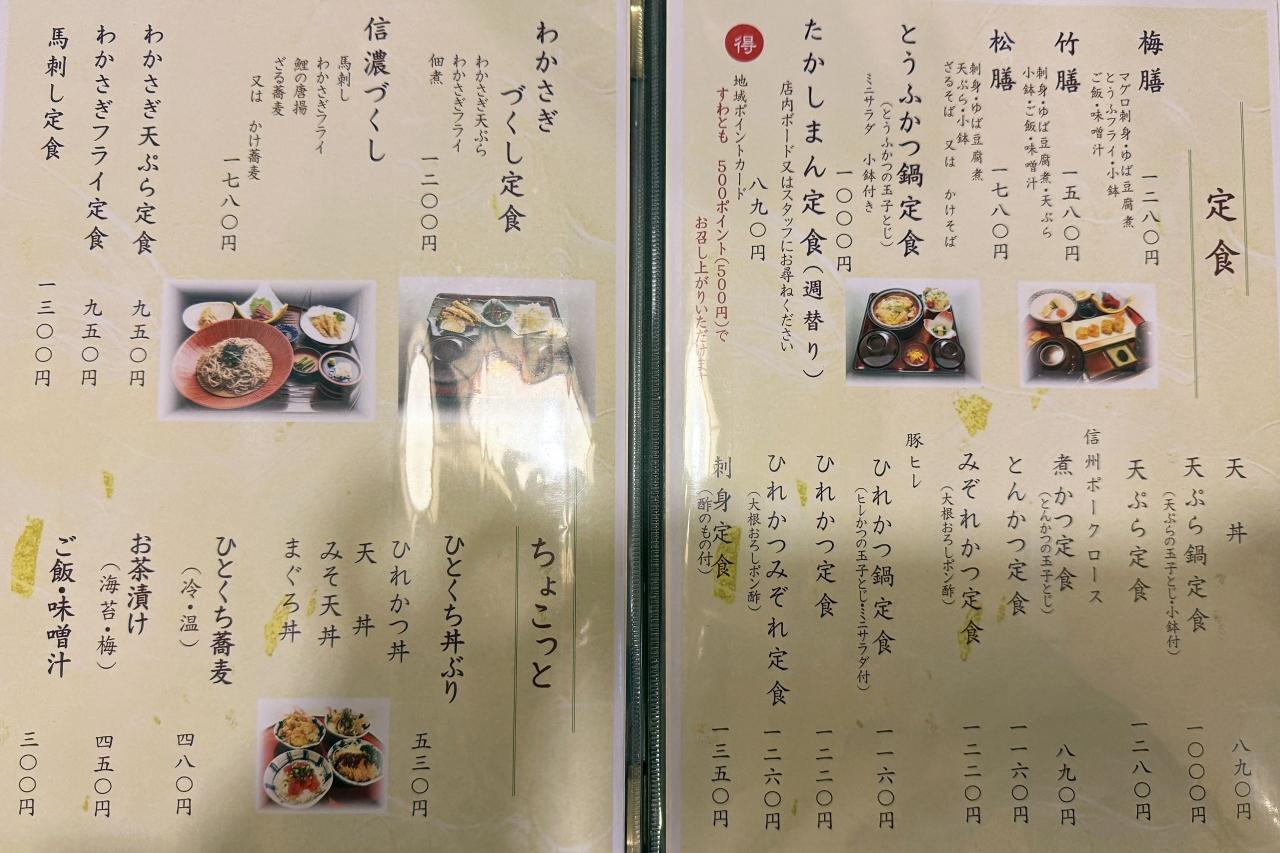 定食
梅膳
マグロ刺身・ゆば豆腐煮
とうふフライ・小鉢
ご飯・味噌汁
一二八〇円
竹膳
刺身・ゆば豆腐煮・天ぷら
小鉢・ご飯・味噌汁
一五八〇円
松膳
刺身・ゆば豆腐煮
天ぷら・小鉢
ざるそば 又は かけそば
一七八〇円
とうふかつ鍋定食
(とうふかつの玉子とじ)
ミニサラダ 小鉢付き
一〇〇〇円
たかしまん定食(週替り)
店内ボード又はスタッフにお尋ねください
八九〇円
得
地域ポイントカード
すわとも 500ポイント(500円)で
お召し上がりいただけます
天丼
八九〇円
天ぷら鍋定食
(天ぷらの玉子とじ・小鉢付)
一〇〇〇円
天ぷら定食
一二八〇円
信州ポークロース
煮かつ定食
(とんかつの玉子とじ)
八九〇円
とんかつ定食
一一六〇円
みぞれかつ定食
(大根おろしポン酢)
一二二〇円
豚ヒレ
ひれかつ鍋定食
(ヒレかつの玉子とじ・ミニサラダ付)
一一六〇円
ひれかつ定食
一二二〇円
ひれかつみぞれ定食
(大根おろしポン酢)
一二六〇円
刺身定食
(酢のもの付)
一三五〇円
わかさぎ
づくし定食
わかさぎ天ぷら
わかさぎフライ
佃煮
一二〇〇円
信濃づくし
馬刺し
わかさぎフライ
鯉の唐揚
ざる蕎麦
又は かけ蕎麦
一七八〇円
わかさぎ天ぷら定食
九五〇円
わかさぎフライ定食
九五〇円
馬刺し定食
一三〇〇円
ちょこっと
ひとくち丼ぶり
五三〇円
ひれかつ丼
天丼
みそ天丼
まぐろ丼
ひとくち蕎麦
(冷・温)
四八〇円
お茶漬け
(海苔・梅)
四五〇円
ご飯・味噌汁
三〇〇円